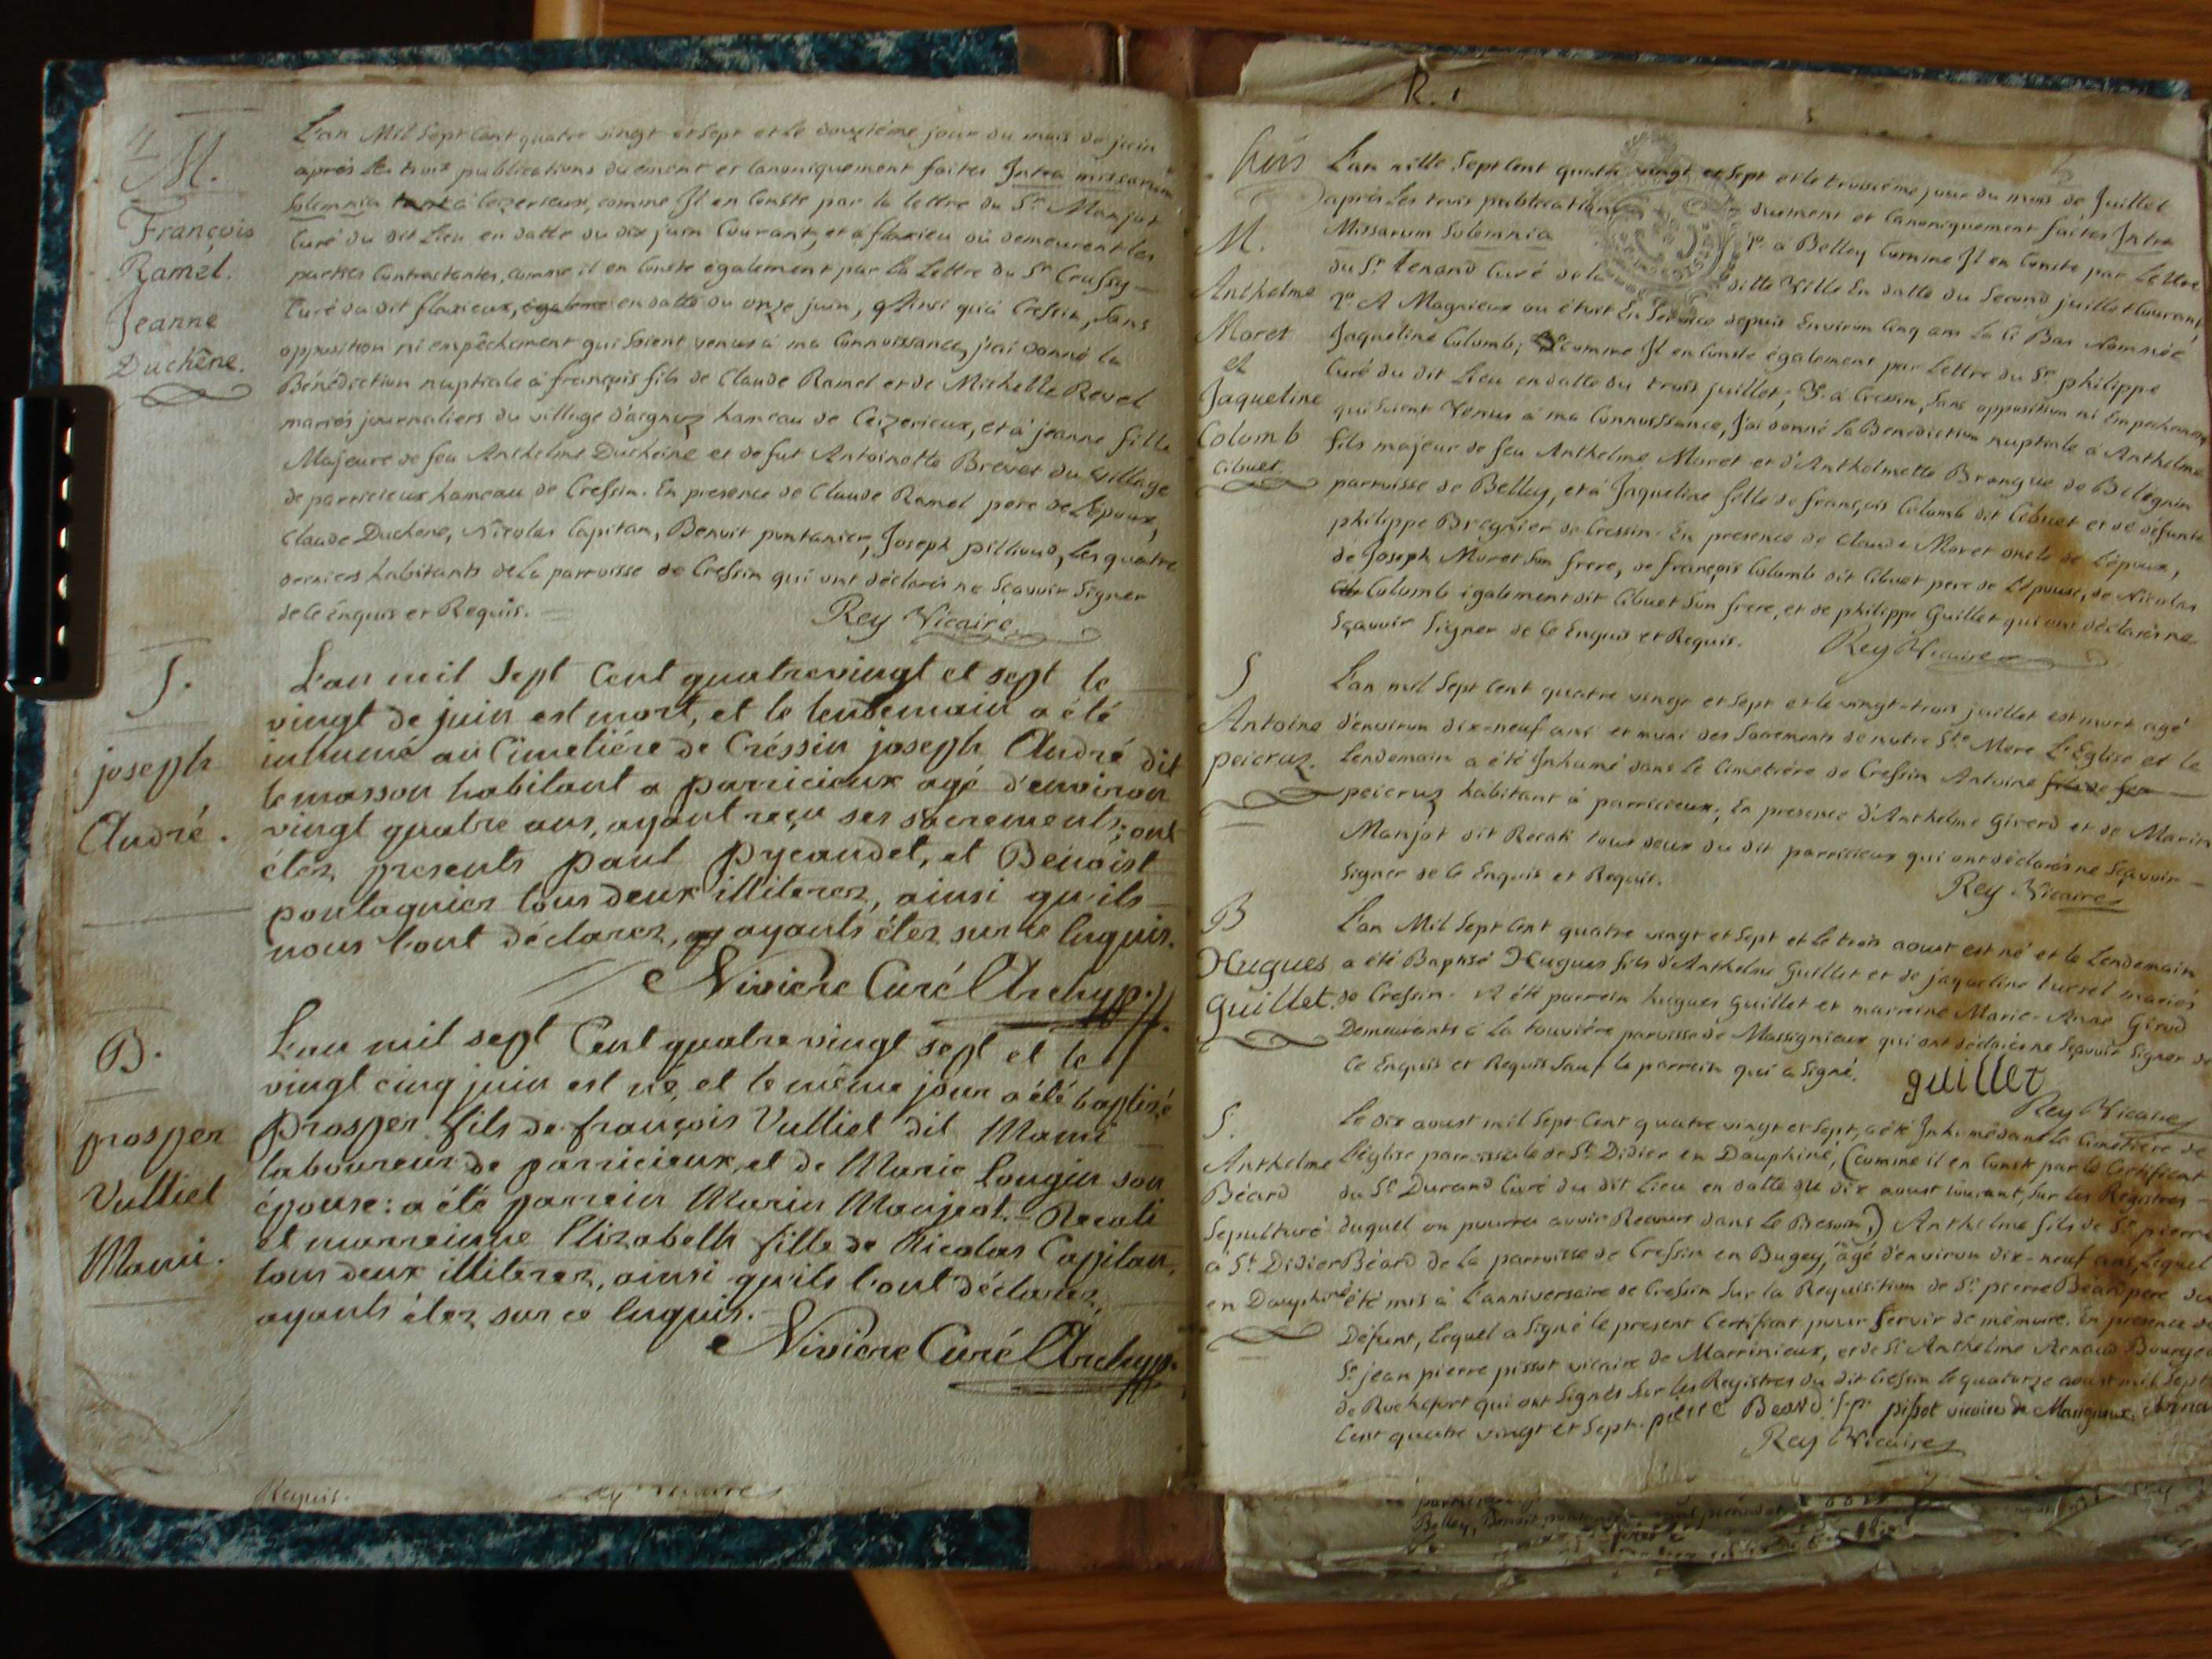 4
M.
François
Ramel.
Jeanne
Duchêne.
L'an Mil Sept Cent quatre vingt et Sept et le douzième jour du mois de juin
après les trois publications duëment et Canoniquement faites Intra missarum
Solemnia à Ceizerieux, comme Il en Conste par la lettre du Sr. Manjot
Curé du dit Lieu en datte du dix juin Courant, et a flaxieu où demeurent les
parties Contractantes, comme il en Conste également par la Lettre du Sr Crussy
Curé du dit flaxieux, en datte du onze juin, Ainsi qu'à Cressin, Sans
opposition ni empêchement qui Soient venus à ma Connoissance, j'ai donné la
Bénédiction nuptiale à françois fils de Claude Ramel et de Michelle Revel
mariés journaliers du village d'aignoz hameau de Ceizerieux, et à jeanne fille
Majeure de feu Anthelme Ducheine et de fut Antoinette Brevet du village
de parricieux hameau de Cressin. En presence de Claude Ramel pere de L'époux,
Claude Duchene, Nicolas Capitan, Benoit pontanier, Joseph pillioud, Les quatre
derniers habitants de La parroisse de Cressin qui ont déclarés ne Sçavoir Signer
de Ce Enquis et Requis.
Rey Vicaire
S.
joseph
André.
L'an mil Sept Cent quatrevingt et sept le
vingt de juin est mort, et le lendemain a été
inhumé au Cimetiére de Créssin joseph André dit
le masson habitant a parricieux agé d'environ
vingt quatre ans, ayant reçu ses sacrements; ont
étez presents paul pycaudet, et Benoist
pontagnier tous deux illiterez, ainsi qu'ils
nous l'ont déclarez, ayants étez sur ce Enquis.
Niviere Curé Archyp.
B.
prosper
Vulliet
Mami.
L'an mil sept Cent quatrevingt sept et le
vingt cinq juin est né, et le même jour a été baptizé
prosper fils de françois Vulliet dit Mami
laboureur de parricieux, et de Marie Lougin son
épouse: a été parrein Marin Manjeot - Recati
et marreinne Elizabeth fille de Nicolas Capitan,
tous deux illiterez, ainsi qu'ils l'ont déclarez,
ayants étez sur ce Enquis.
Niviere Curé Archyp.
Requis.
R. 1
M.
Anthelme
Moret
et
Jaqueline
Colomb
Cibuet
L'an mille Sept Cent quatre vingt et Sept et le troisième jour du mois de Juillet
après Les trois publications duement et Canoniquement faites Intra
Missarum Solemnia 1º. à Belley Comme Il en Conste par Lettre
du Sr. tenand Curé de la ditte Ville En datte du Second juillet Courant,
2º. A Magnieux ou étoit En Service depuis Environ Cinq ans La Ci Bas Nommée
Jaqueline Colomb; comme Il en Conste également par Lettre du Sr. philippe
Curé du dit Lieu en datte du trois juillet; 3º à Cressin, Sans opposition ni Empechement
qui Soient Venus à ma Connoissance, J'ai donné La Benediction nuptiale à Anthelme
fils majeur de feu Anthelme Moret et d'Anthelmette Brangue de Bélignin
parroisse de Belley, et à Jaqueline fille de françois Colomb dit Cibuet et de défunte
philippe Bregnier de Cressin. En presence de Claude Moret oncle de L'époux,
de Joseph Moret Son frere, de françois Colomb dit Cibuet pere de L'épouse, de Nicolas
Colomb également dit Cibuet Son frere, et de philippe Guillet qui ont déclarés ne
Sçavoir Signer de Ce Enquis et Requis.
Rey Vicaire
S
Antoine
peicruz.
L'an mil Sept Cent quatre vingt et Sept et le vingt-trois juillet est mort agé
d'environ dix-neuf ans et muni des Sacrements de nutre Ste Mere L'Eglise et le
Lendemain a été Inhumé dans le Cimetiére de Cressin Antoine fils de feu
peicruz habitant à parricieux; En presence d'Anthelme Girerd et de Marin
Manjot dit Recati tout deux du dit parricieux qui ont déclarés ne Sçavoir
Signer de Ce Enquis et Requis.
Rey Vicaire
B
Hugues
Guillet.
L'an Mil Sept Cent quatre vingt et Sept et Le trois aoust est né et le Lendemain
a été Baptisé Hugues fils d'Anthelme Guillet et de jaqueline turrel mariés
de Cressin. A été parrein hugues Guillet et marreine Marie-Anne Girod
Demeurants à La touvière parroisse de Massignieux qui ont déclarés ne Sçavoir Signer de
Ce Enquis et Requis Sauf le parrein qui a Signé.
guillet
Rey Vicaire
S.
Anthelme
Béard
Sepulturé
à St. Didier
en Dauphiné
Le dix aoust mil Sept Cent quatre vingt et Sept, a été Inhumé dans le Cimetière de
L'église parroissiale de St. Didier en Dauphiné, (comme il en Conste par le Certificat
du Sr Durand Curé du dit Lieu en datte du dix aoust Courant, Sur Les Registres
duquel on pourra avoir Recours dans le Besoin) Anthelme fils de Sr. pierre
Béard de La parroisse de Cressin en Bugey, âgé d'environ dix-neuf ans, Lequel
été mis à L'anniversaire de Cressin Sur La Requisition de Sr. pierre Béard pere du
Défunt, Lequel a Signé le present Certificat pour Servir de mémoire. En presence de
Sr. jean pierre pissot vicaire de Marrinieux, et de Sr Anthelme Arnaud Bourgeois
de Rochefort qui ont Signés Sur Les Registres du dit Cressin le quatorze aoust mil Sept
Cent quatre vingt et Sept. pierre Beard. j. p. pissot vicaire de Marignieux. Arna
Rey Vicaire